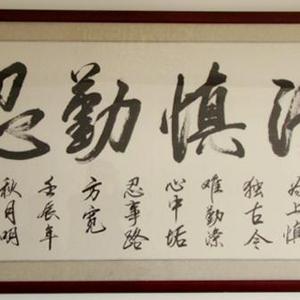 慎勤忍
上慎
独古今
难勤涤
心中垢
忍事路
方宽
壬辰年
秋月明